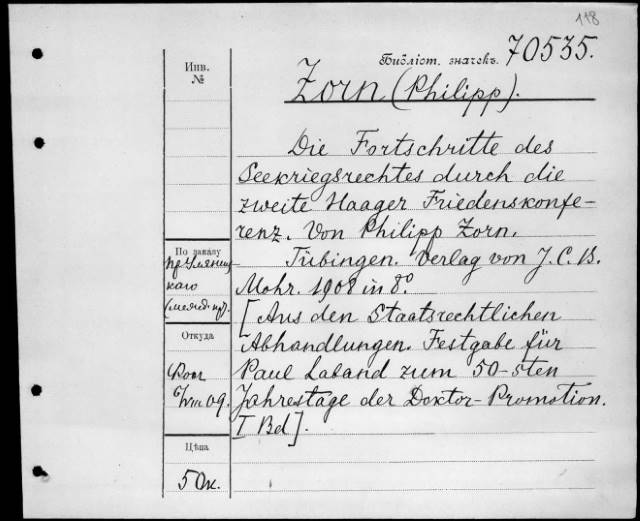 118
Библіот. значекъ. 70535.
Инв.
№
Zorn (Philipp).
Die Fortschritte des
Seekriegsrechtes durch die
zweite Haager Friedenskonfe-
renz. Von Philipp Zorn.
Tübingen. Verlag von J. C. B.
Mohr. 1908 in 8°.
[Aus den Staatsrechtlichen
Abhandlungen. Festgabe für
Paul Laband zum 50-sten
Jahrestage der Doktor-Promotion.
I Bd].
По заказу
каго
Откуда
6/VIII 09.
Цѣна
50к.